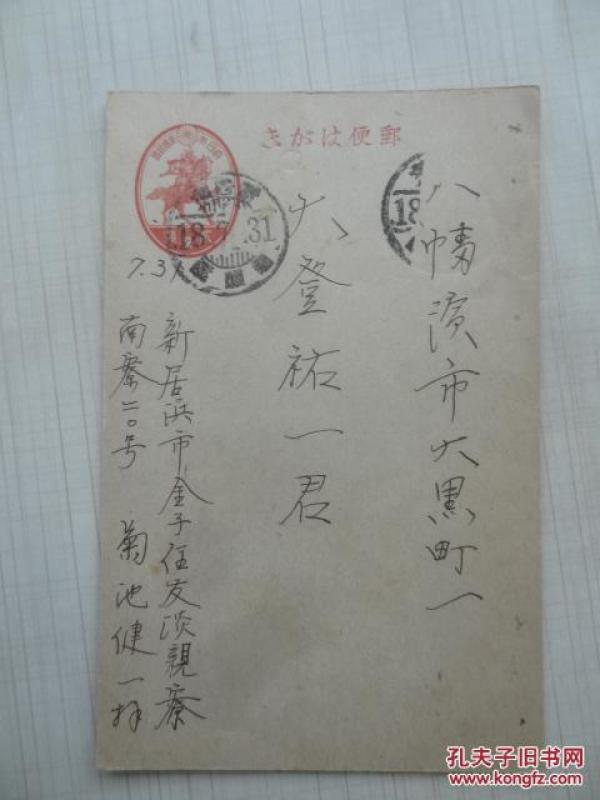 郵便はがき
八幡濱市大黒町一
大登祐一君
18.7.31
18
7.31
新居浜市金子住友淡親寮
南寮二〇号 菊池健一拝
孔夫子旧书网
www.kongfz.com